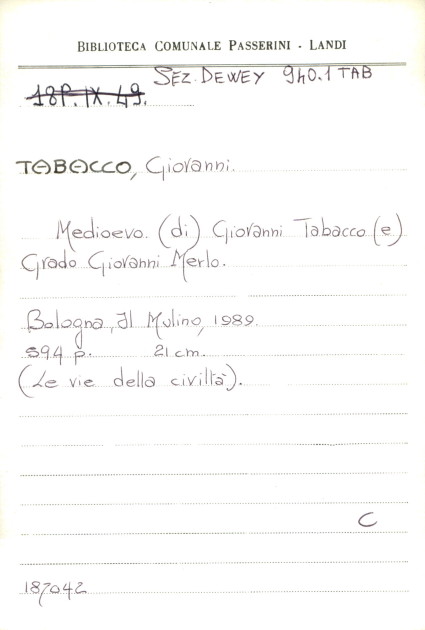 BIBLIOTECA COMUNALE PASSERINI - LANDI
SEZ. DEWEY 940.1 TAB
18P.IX.49.
TABACCO, Giovanni.
Medioevo. (di) Giovanni Tabacco (e)
Grado Giovanni Merlo.
Bologna, Il Mulino, 1989.
594 p. 21 cm.
(Le vie della civiltà).
C
187042